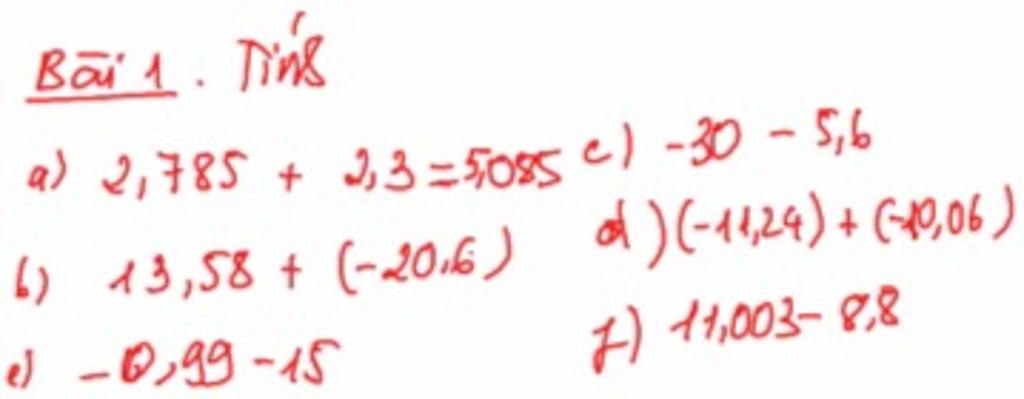 Bài 1. Tính
a) 2,785 + 2,3 = 5,085
c) -30 - 5,6
b) 13,58 + (-20,6)
d) (-11,24) + (-10,06)
e) -0,99 - 15
f) 11,003 - 8,8